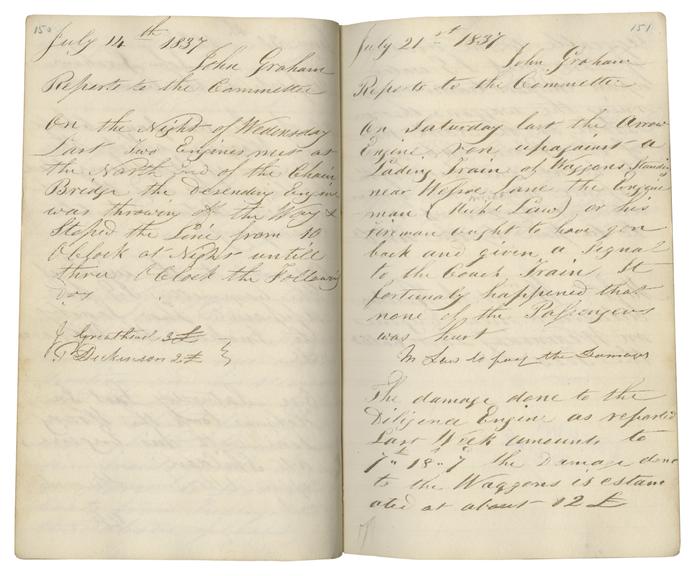 150
July 14th 1837
John Graham
Reports to the Committee
On the Night of Wedensday
Last two Engines met at
the North End of the Chain
Bridge the Desending Engine
was throwing of the Way &
Stoped the Line from 10
OClock at Night untill
three OClock the Following
Day
J Greathead 3£
T Dickinson 2£
151
July 21st 1837
John Graham
Reports to the Committee
On Saturday last the Arrow
Engine ron upagainst a
Lading Train of Waggons Standing
near Lane the Engine
man ( Law) or his
fireman ought to have gon
back and given a Signal
to the Coach Train It
fortunaly happened that
none of the Passengers
was hurt
M Law to pay the Damages
The damage done to the
Diligence Engine as reported
Last Week amounts to
7" 18" 7 the Damage done
to the Waggons is estam
ated at about 12 £